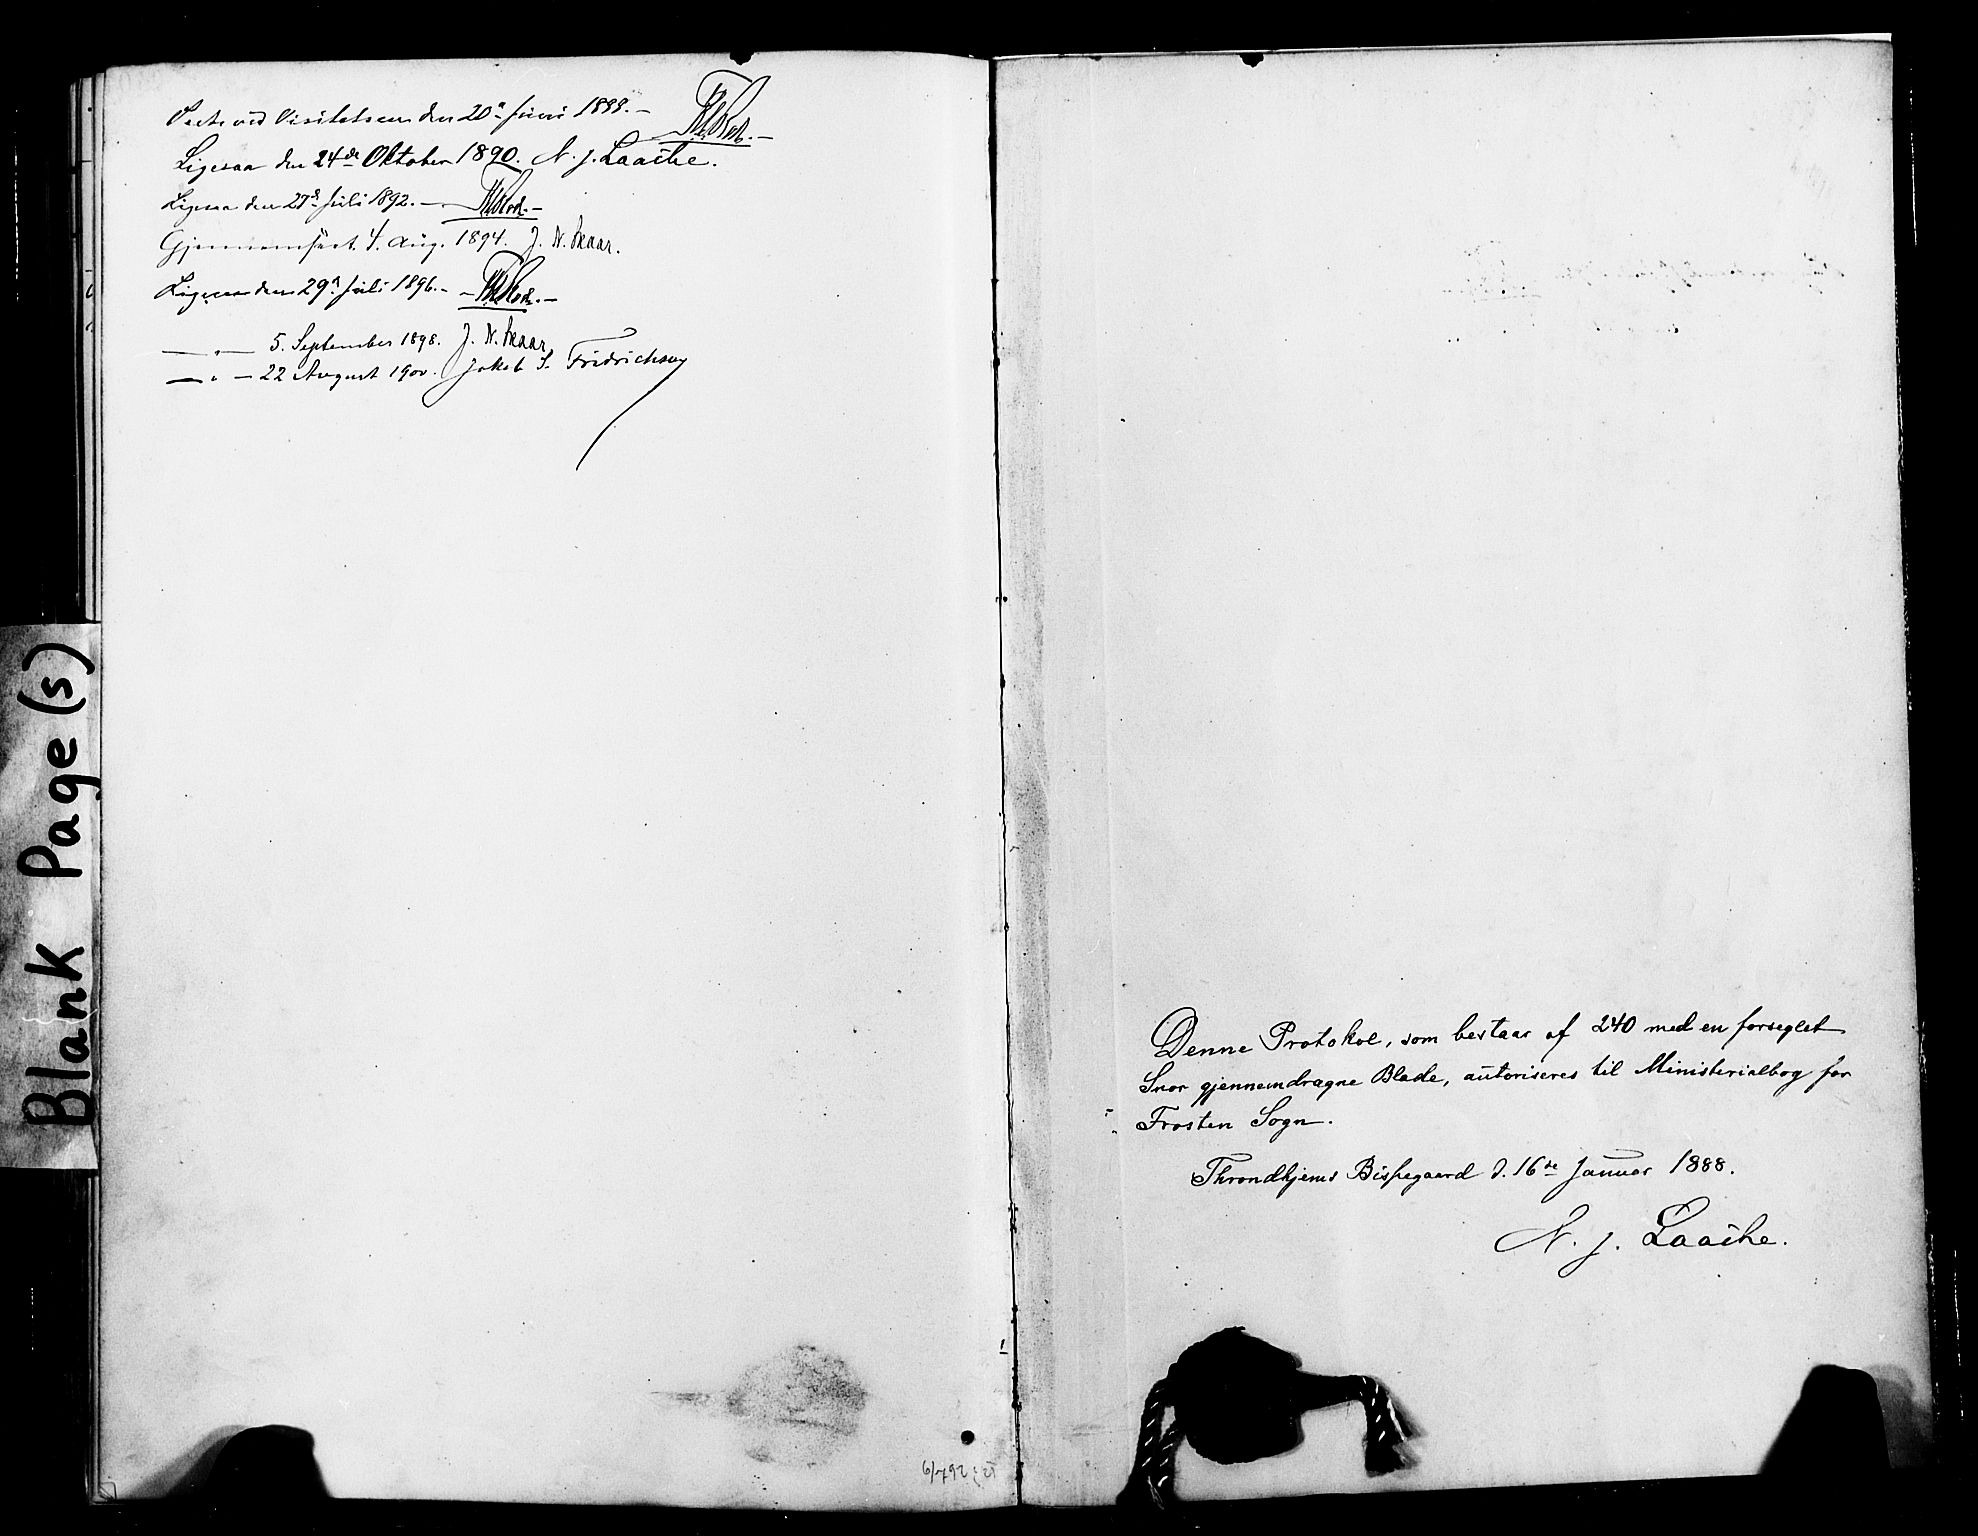 ved Visitatsen den 20de Juni 1888. –
Ligesaa den 24de Oktober 1890. N. J. Laache.
Ligesaa den 27de Juli 1892. –
Gjennemseet. 4. Aug. 1894. J. N. Skaar.
Ligesaa den 29de Juli 1896. –
— „ — 5. September 1898. J. N. Skaar
— „ — 22 August 1900. Jakob S. Fridrichsen
Blank Page (s)
Denne Protokol, som bestaar af 240 med en forseglet
Snor gjennemdragne Blade, autoriseres til Ministerialbog for
Frosten Sogn.
Throndhjems Bispegaard d. 16de Januar 1888.
N. J. Laache.